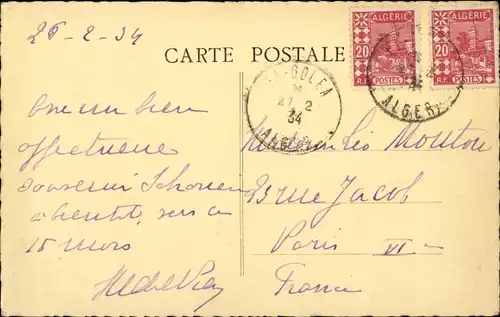 26-2-34
CARTE POSTALE
ALGÉRIE
20
R.F. POSTES
ALGÉRIE
20
R.F. POSTES
EL-GOLEA
27-2
34
ALGER
ALGER
avec un bien
affectueux
souvenir
à bientôt, vers le
15 mars
Léo Mouton
23 rue Jacob
Paris VI
France